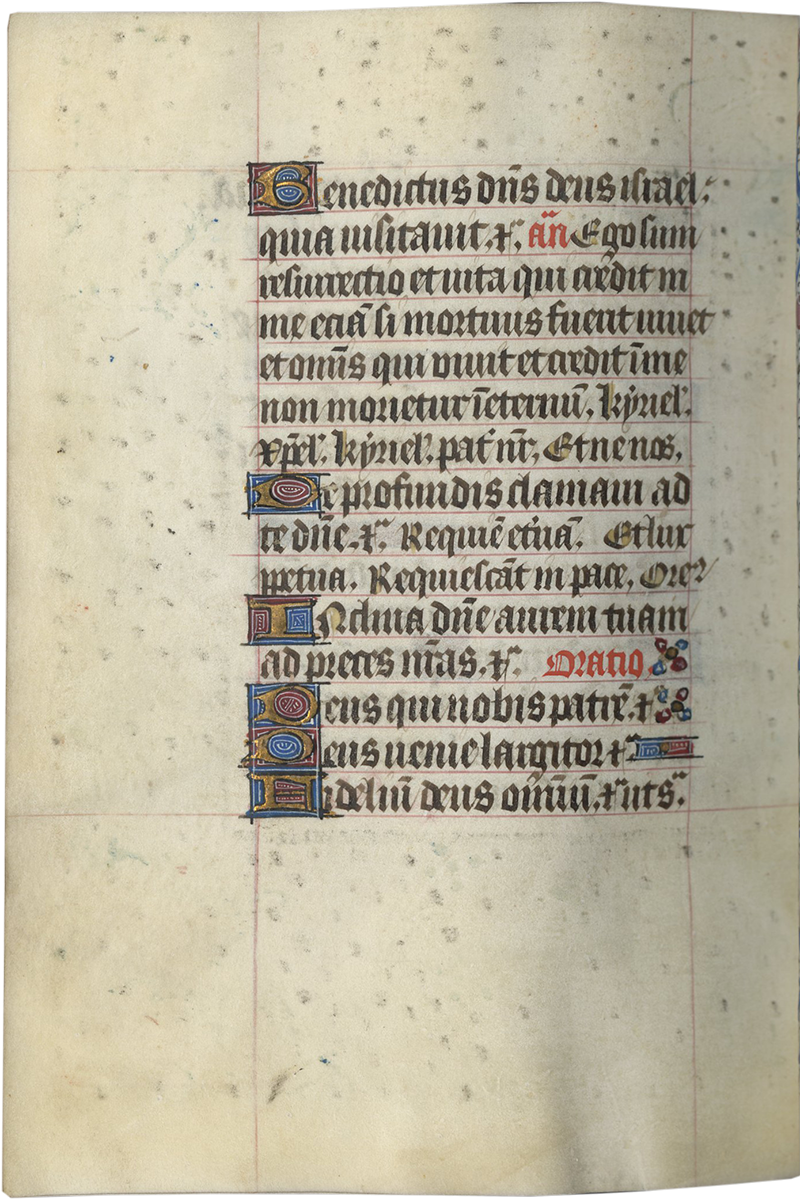 Benedictus dñs deus israel.
quia uisitauit. ⁊c̃. añ Ego sum
resurrectio et uita qui credit in
me eciã si mortuus fuerit uiuet
et omĩs qui viuit et credit ĩ me
non morietur ĩ eternũ. kyriel'.
xp̃el'. kyriel'. pat' nr̃. Et ne nos.
De profundis clamaui ad
te dñe. ⁊c̃. Requiẽ et'nã. Et lux
ꝑpetua. Requiescãt in pace. Ore'
INclina dñe aurem tuam
ad preces nr̃as. ⁊c̃. Oratio
Deus qui nobis patrẽ. ⁊c̃
Deus uenie largitor ⁊c̃
Fidelũ deus oĩm̃. ⁊c̃ ut sᵃ.